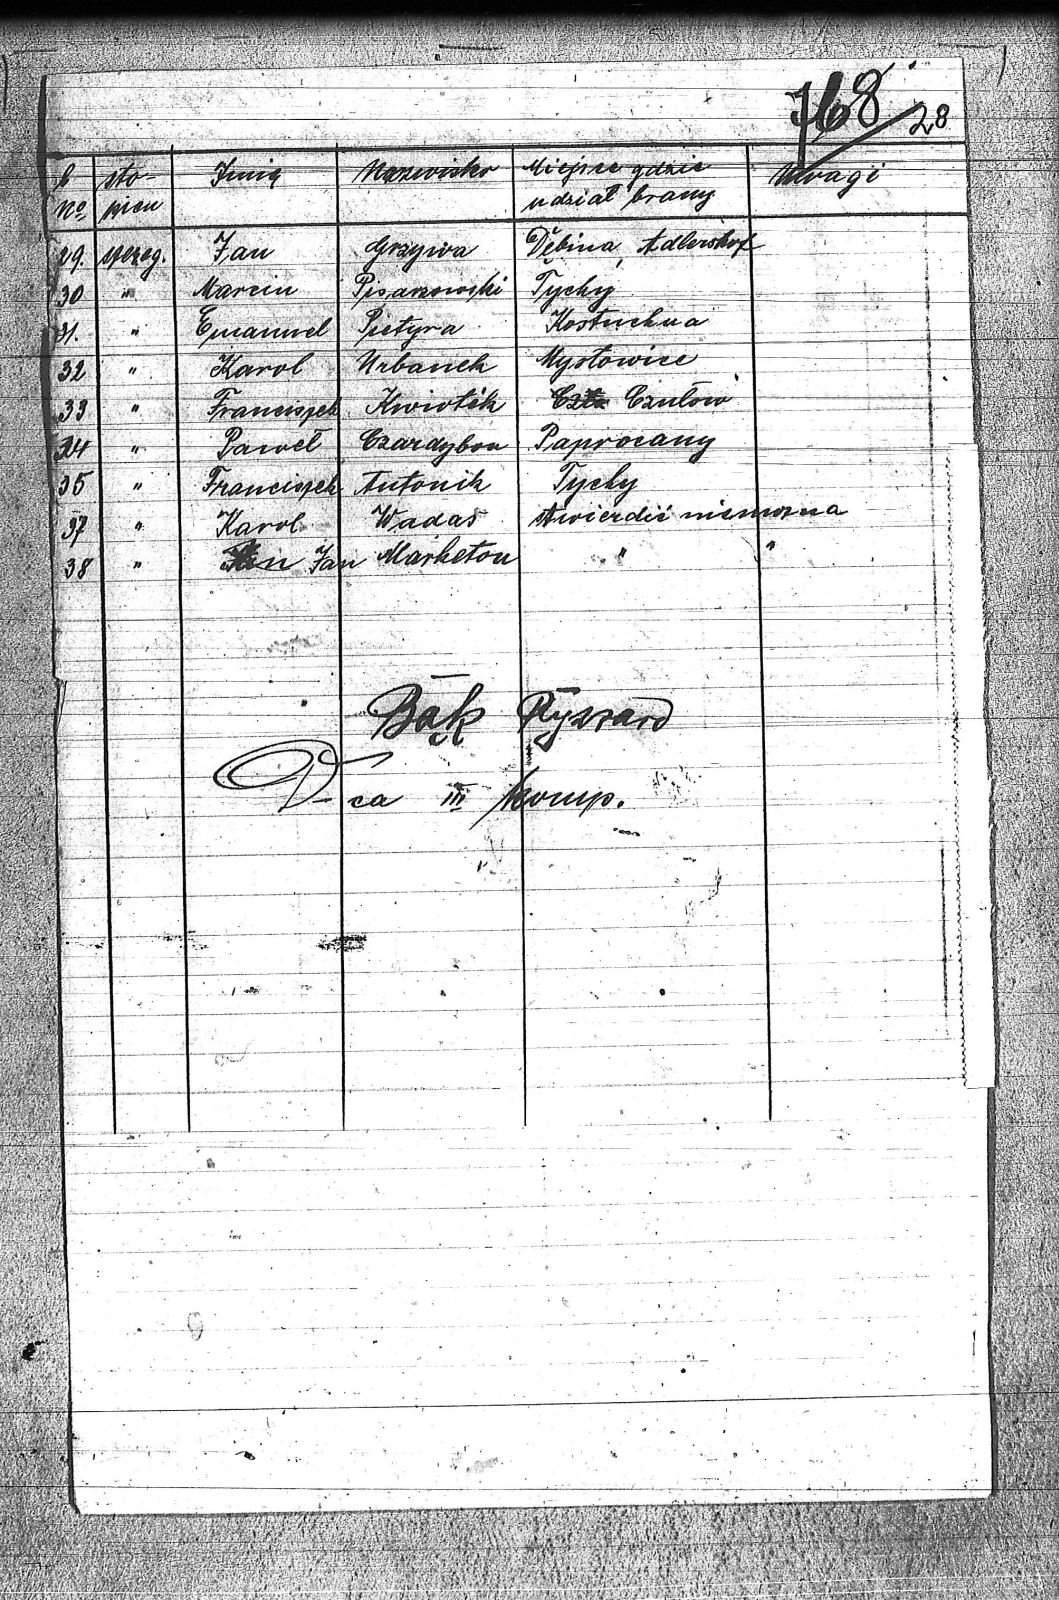 768/28
b No sto- pień Imię Nazwisko Miejsce gdzie udział brany Uwagi
29. szereg. Jan Grzywa Dębina, Adlershof
30 " Marcin Pisarzowski Tychy
31. " Emanuel Pietyra Kostuchna
32 " Karol Urbanek Mysłowice
33 " Franciszek Kwiotek Czułów
34 " Paweł Czardybon Paprocany
35 " Franciszek Antonik Tychy
37 " Karol Wadas stwierdić niemożna
38 " Jan Marketon " "
Bąk Ryszard
D-ca III komp.